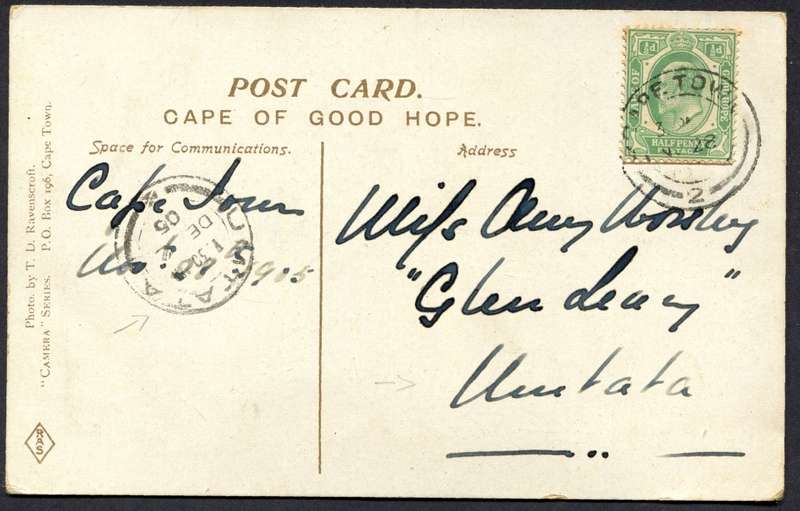 POST CARD.
CAPE OF GOOD HOPE.
Space for Communications.
Address
Cape Town
Nov 1905
Miss Amy Worsley
"Glendeary"
Umtata
Photo. by T. D. Ravenscroft.
"CAMERA" SERIES. P.O. Box 196, Cape Town.
RAS
½d ½d
OF HOPE
HALF PENNY
CAPE TOWN
2
UMTATA
DE
05